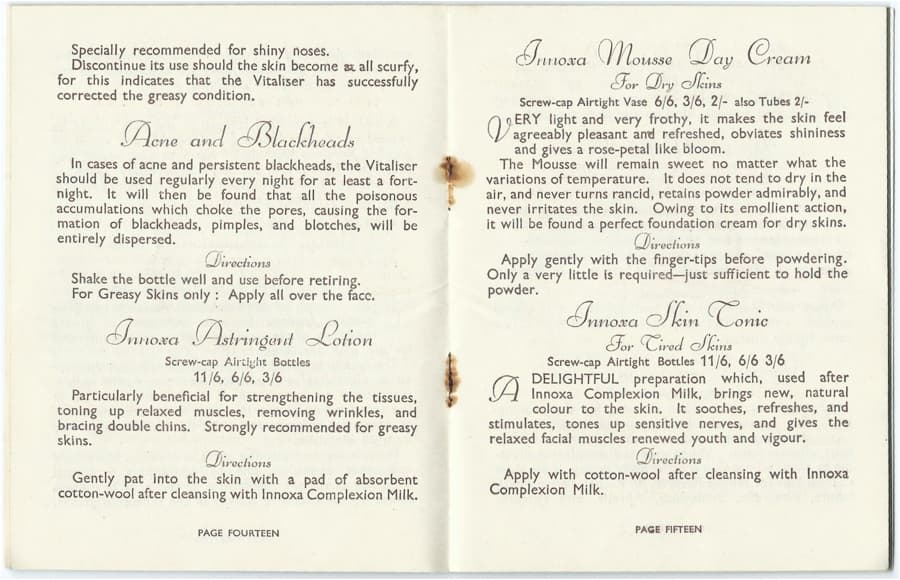 Specially recommended for shiny noses.
Discontinue its use should the skin become at all scurfy,
for this indicates that the Vitaliser has successfully
corrected the greasy condition.
Acne and Blackheads
In cases of acne and persistent blackheads, the Vitaliser
should be used regularly every night for at least a fort-
night. It will then be found that all the poisonous
accumulations which choke the pores, causing the for-
mation of blackheads, pimples, and blotches, will be
entirely dispersed.
Directions
Shake the bottle well and use before retiring.
For Greasy Skins only : Apply all over the face.
Innoxa Astringent Lotion
Screw-cap Airtight Bottles
11/6, 6/6, 3/6
Particularly beneficial for strengthening the tissues,
toning up relaxed muscles, removing wrinkles, and
bracing double chins. Strongly recommended for greasy
skins.
Directions
Gently pat into the skin with a pad of absorbent
cotton-wool after cleansing with Innoxa Complexion Milk.
PAGE FOURTEEN
Innoxa Mousse Day Cream
For Dry Skins
Screw-cap Airtight Vase 6/6, 3/6, 2/- also Tubes 2/-
VERY light and very frothy, it makes the skin feel
agreeably pleasant and refreshed, obviates shininess
and gives a rose-petal like bloom.
The Mousse will remain sweet no matter what the
variations of temperature. It does not tend to dry in the
air, and never turns rancid, retains powder admirably, and
never irritates the skin. Owing to its emollient action,
it will be found a perfect foundation cream for dry skins.
Directions
Apply gently with the finger-tips before powdering.
Only a very little is required—just sufficient to hold the
powder.
Innoxa Skin Tonic
For Tired Skins
Screw-cap Airtight Bottles 11/6, 6/6 3/6
A DELIGHTFUL preparation which, used after
Innoxa Complexion Milk, brings new, natural
colour to the skin. It soothes, refreshes, and
stimulates, tones up sensitive nerves, and gives the
relaxed facial muscles renewed youth and vigour.
Directions
Apply with cotton-wool after cleansing with Innoxa
Complexion Milk.
PAGE FIFTEEN